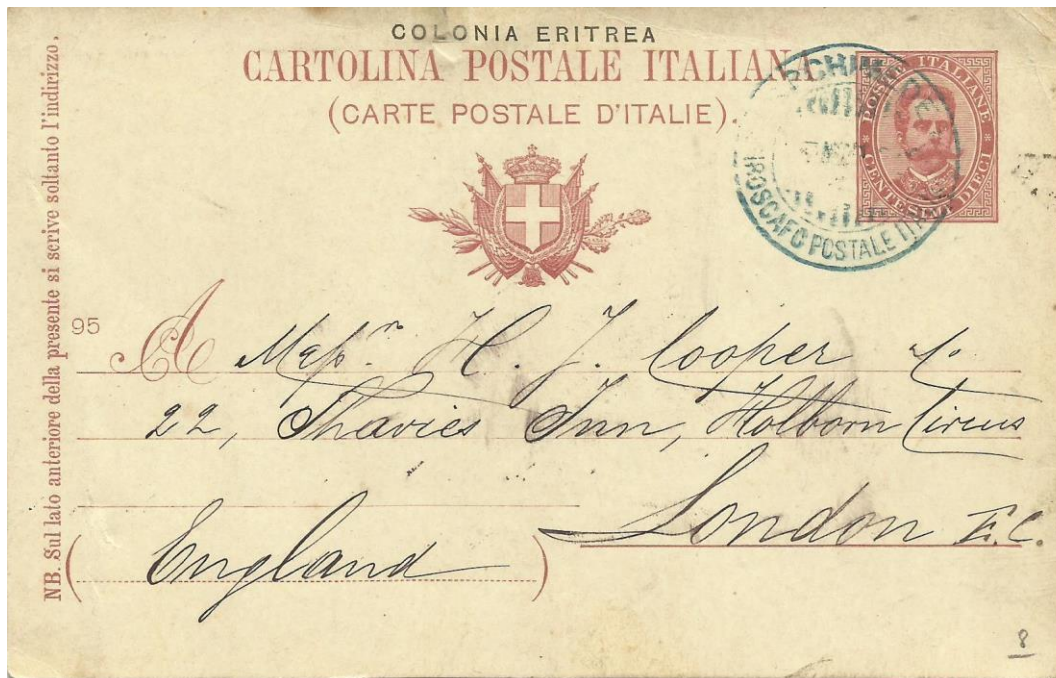 COLONIA ERITREA
CARTOLINA POSTALE ITALIANA
(CARTE POSTALE D'ITALIE).
POSTE ITALIANE
CENTESIMI DIECI
POSTALE
NB. Sul lato anteriore della presente si scrive soltanto l'indirizzo.
95
A Messrs H. J. Cooper
22, Thavies Inn, Holborn Circus
London E.C.
(England)
8